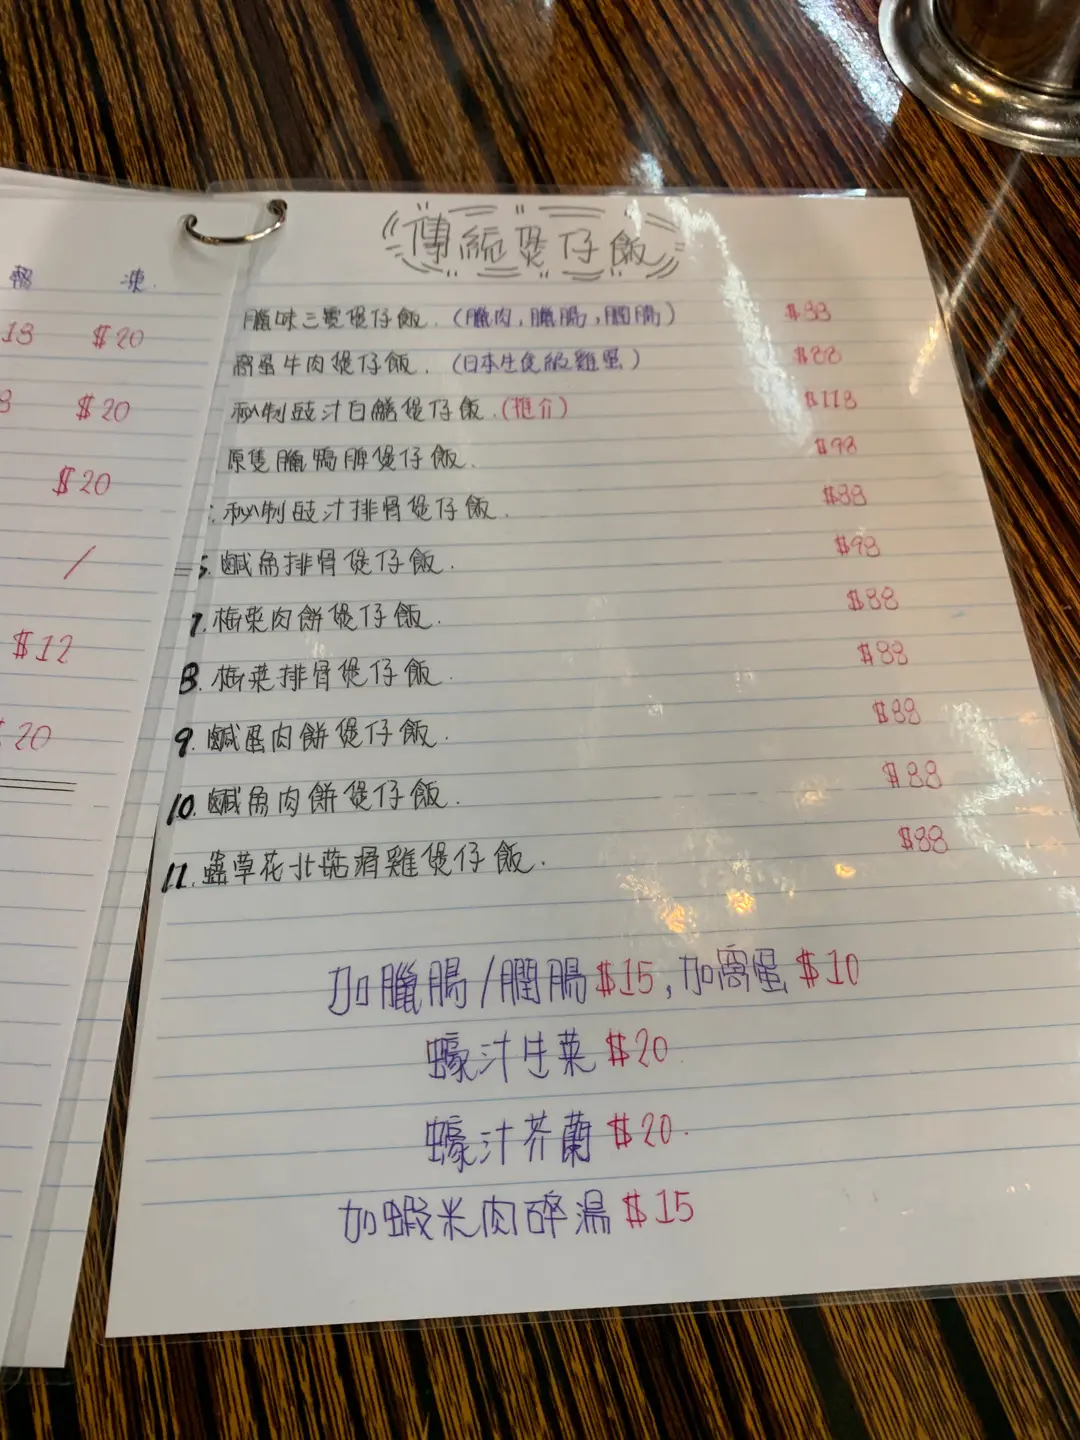 熱 凍
18 $20
8 $20
$20
/
$12
$20
傳統煲仔飯
臘味三寶煲仔飯. (臘肉,臘腸,膶腸) $88
窩蛋牛肉煲仔飯. (日本生食級雞蛋) $88
秘制豉汁白鱔煲仔飯.(推介) $118
原隻臘鴨脾煲仔飯. $98
秘制豉汁排骨煲仔飯. $88
鹹魚排骨煲仔飯. $98
7. 梅菜肉餅煲仔飯. $88
8. 梅菜排骨煲仔飯. $88
9. 鹹蛋肉餅煲仔飯. $88
10. 鹹魚肉餅煲仔飯. $88
11. 蟲草花北菇滑雞煲仔飯. $88
加臘腸/膶腸$15,加窩蛋$10
蠔汁生菜$20
蠔汁芥蘭$20.
加蝦米肉碎湯$15